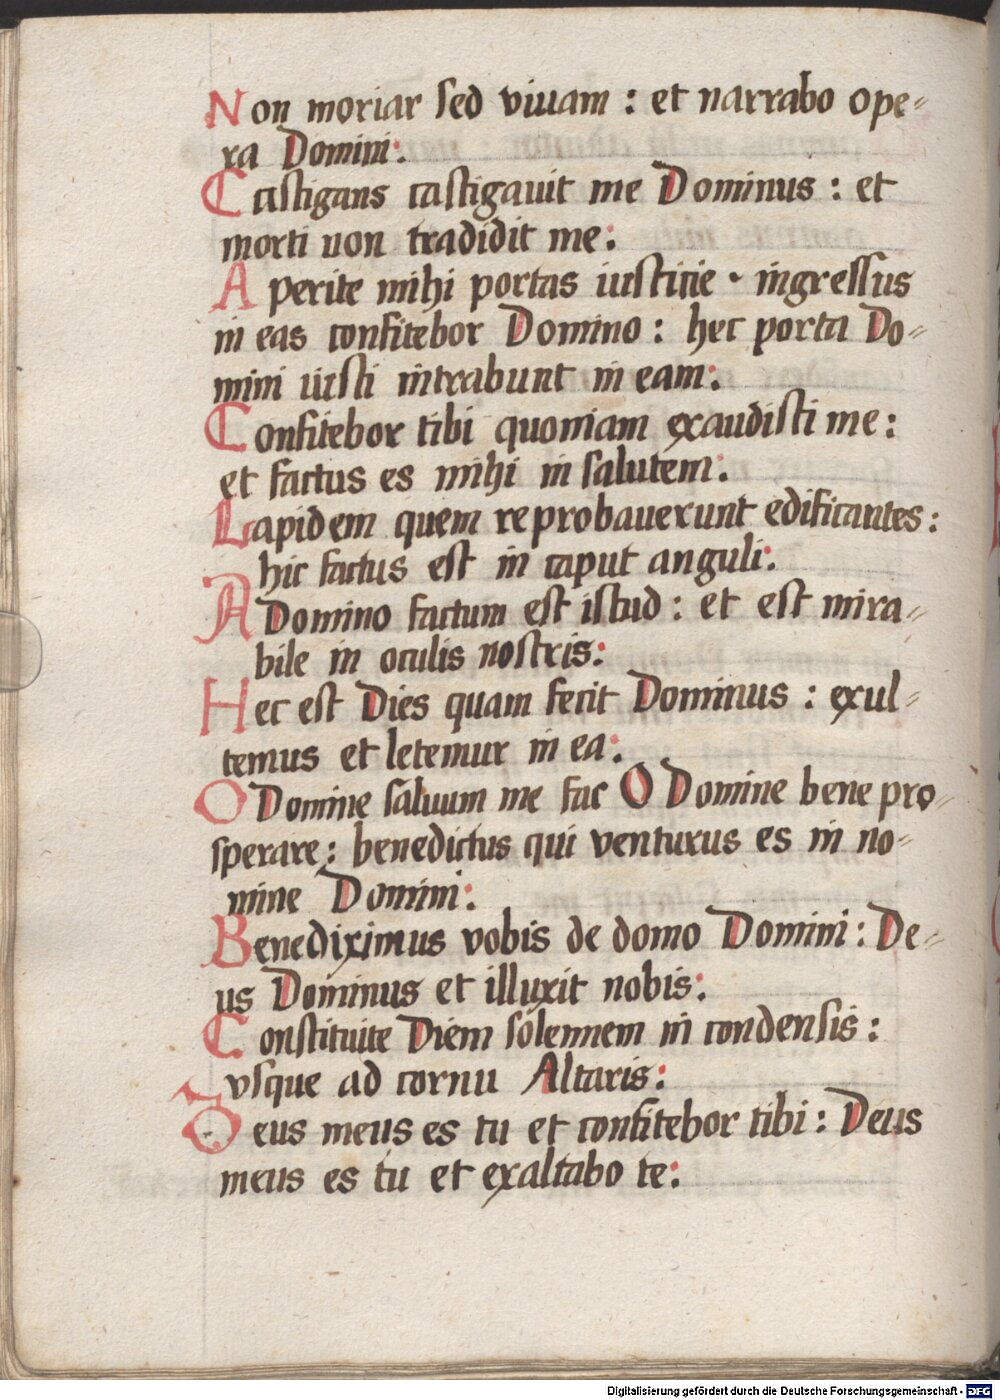 Non moriar sed viuam : et narrabo ope=
ra Domini:
Castigans castigauit me Dominus : et
morti non tradidit me:
Aperite mihi portas iusticie · ingressus
in eas confitebor Domino : hec porta Do=
mini iusti intrabunt in eam:
Confitebor tibi quoniam exaudisti me :
et factus es mihi in salutem:
Lapidem quem reprobauerunt edificantes :
hic factus est in caput anguli:
A Domino factum est istud : et est mira=
bile in oculis nostris:
Hec est Dies quam fecit Dominus : exul=
temus et letemur in ea:
O Domine saluum me fac O Domine bene pro=
sperare : benedictus qui venturus es in no=
mine Domini:
Benediximus vobis de domo Domini : De=
us Dominus et illuxit nobis:
Constituite Diem solennem in condensis :
vsque ad cornu Altaris:
Deus meus es tu et confitebor tibi : Deus
meus es tu et exaltabo te:
Digitalisierung gefördert durch die Deutsche Forschungsgemeinschaft - DFG